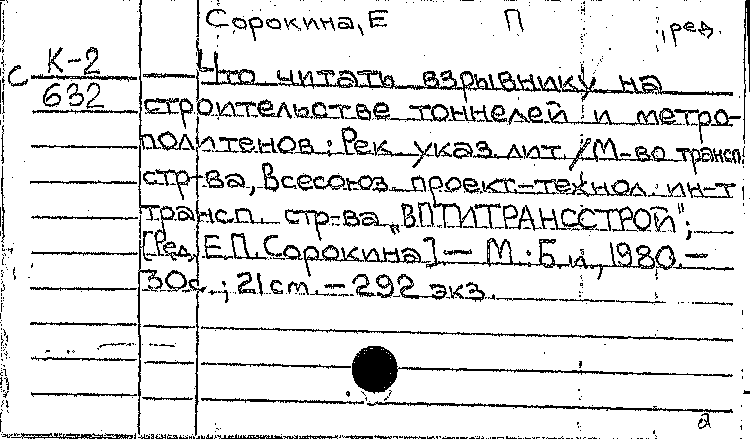 Сорокина, Е П , ред.
С К-2
632
Что читать взрывнику на
строительстве тоннелей и метро-
политенов : Рек указ. лит. / М-во трансп.
стр-ва, Всесоюз. проект.-технол. ин-т
трансп. стр-ва "ВПТИТРАНССТРОЙ";
[Ред. Е.П. Сорокина] — М. : Б. и., 1980. —
30с. ; 21 см. — 292 экз.
а